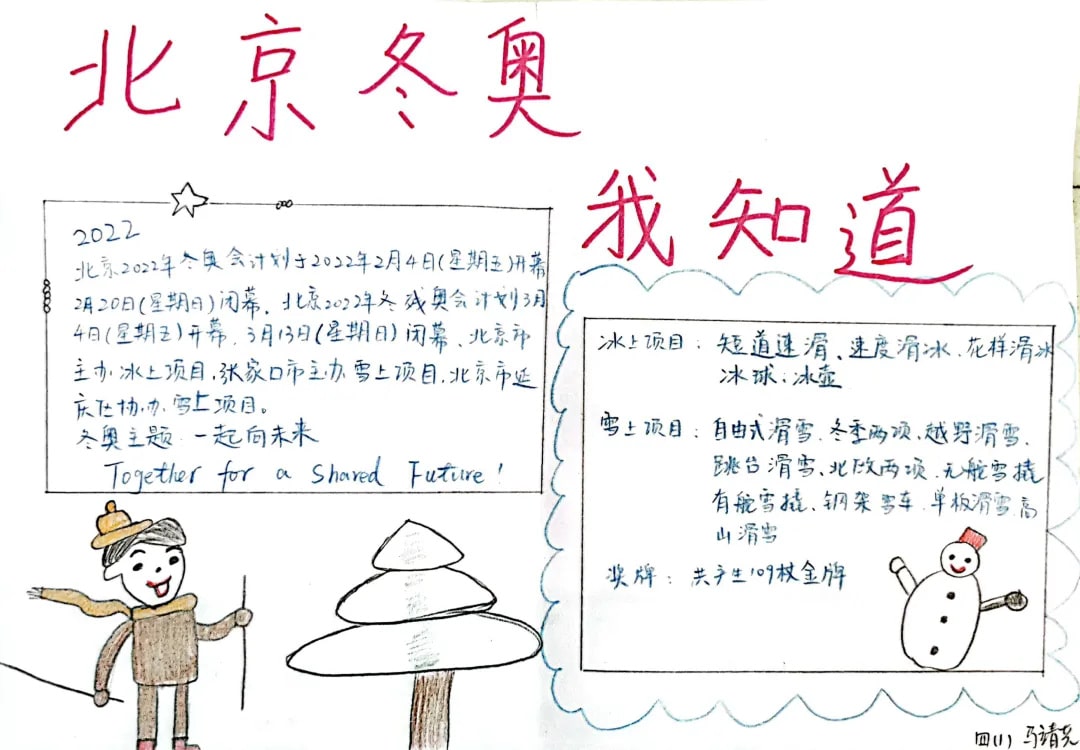 北京冬奥
我知道
2022
北京2022年冬奥会计划于2022年2月4日(星期五)开幕
2月20日(星期日)闭幕，北京2022年冬残奥会计划3月
4日(星期五)开幕，3月13日(星期日)闭幕、北京市
主办冰上项目,张家口市主办雪上项目,北京市延
庆区协办雪上项目。
冬奥主题:一起向未来
Together for a Shared Future!
冰上项目: 短道速滑、速度滑冰、花样滑冰
冰球、冰壶
雪上项目: 自由式滑雪、冬季两项、越野滑雪、
跳台滑雪、北欧两项、无舵雪撬
有舵雪撬、钢架雪车、单板滑雪、高
山滑雪
奖牌: 共产生109枚金牌
四(1) 马靖尧